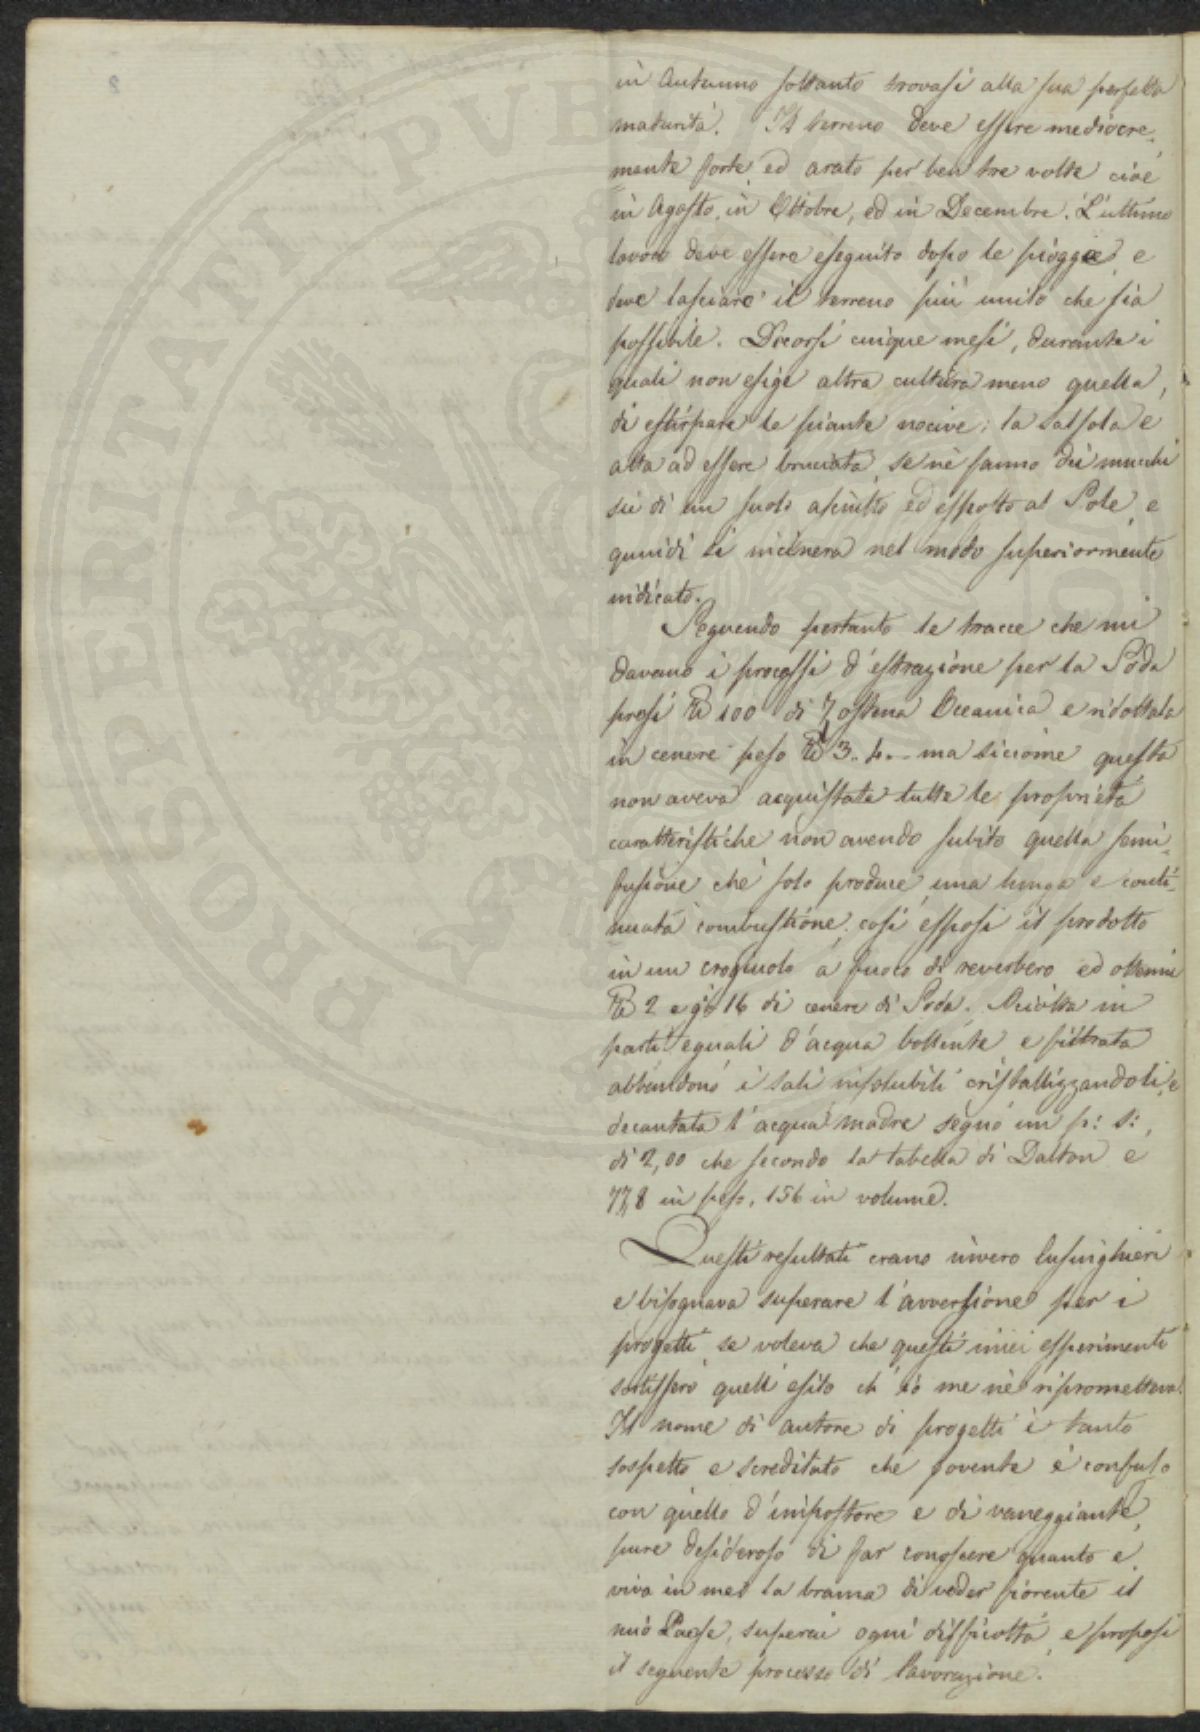 in Autunno soltanto trovasi alla sua perfetta
maturità. Il terreno deve essere mediocre-
mente forte ed arato per ben tre volte cioè
in Agosto, in Ottobre, ed in Decembre. L'ultimo
lavoro deve essere eseguito dopo le piogge e
deve lasciare il terreno più unito che sia
possibile. Decorsi cinque mesi, durante i
quali non esige altra cultura meno quella,
di estirpare le piante nocive; la salsola è
atta ad essere bruciata, se nè fanno dei mucchi
su di un suolo asciutto ed esposto al Sole, e
quindi si incinera nel modo superiormente
indicato.
Seguendo pertanto le tracce che mi
davano i processi d'estrazione per la Soda
presi ℔ 100 di Zostera Oceanica e ridottala
in cenere peso ℔ 3.. 4.-- ma siccome questa
non aveva acquistate tutte le proprietà
caratteristiche non avendo subito quella semi-
fusione che solo produce una lunga e conti-
nuata combustione; così esposi il prodotto
in un crogiuolo a fuoco di reverbero ed ottenni
℔ 2 e 16 di cenere di Soda. Sciolta in
parti eguali d'acqua bollente e filtrata
abbandonò i sali insolubili cristallizzandoli, e
decantata l'acqua madre segnò un p: s:,
di 2,00 che secondo la tabella di Dalton è
77,8 in peso, 156 in volume.
Questi resultati erano invero lusinghieri
e bisognava superare l'avversione per i
progetti se voleva che questi miei esperimenti
sortissero quell'esito ch'io me nè riprometteva.
Il nome di autore di progetti è tanto
sospetto e screditato che sovente è confuso
con quello d'impostore e di vaneggiante,
pure desideroso di far conoscere quanto è
viva in me la brama di veder fiorente il
mio Paese, superai ogni difficoltà, e proposi
il seguente processo di lavorazione.
PROSPERITATI PUB